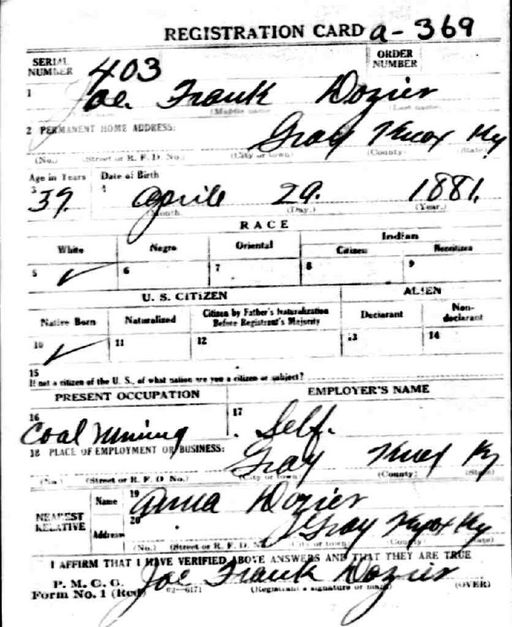 REGISTRATION CARD a-369
SERIAL NUMBER 403 ORDER NUMBER
1 Joe. Frank Dozier
(Middle name) (Last name)
2 PERMANENT HOME ADDRESS:
Gray Knox Ky
(No.) (Street or R. F. D. No.) (City or town) (County) (State)
Age in Years Date of Birth
3 37. 4 Aprile 29. 1881.
(Month.) (Day.) (Year.)
RACE
White Negro Oriental Indian
Citizen Noncitizen
5 ✓ 6 7 8 9
U. S. CITIZEN ALIEN
Native Born Naturalized Citizen by Father's Naturalization Before Registrant's Majority Declarant Non-declarant
10 ✓ 11 12 13 14
15
If not a citizen of the U. S., of what nation are you a citizen or subject?
PRESENT OCCUPATION EMPLOYER'S NAME
16 Coal Mining 17 Self.
18 PLACE OF EMPLOYMENT OR BUSINESS:
Gray Knox Ky
(No.) (Street or R. F. D. No.) (City or town) (County) (State)
NEAREST RELATIVE Name 19 Anna Dozier
Address 20 Gray Knox Ky
(No.) (Street or R. F. D. No.) (City or town) (County) (State)
I AFFIRM THAT I HAVE VERIFIED ABOVE ANSWERS AND THAT THEY ARE TRUE
P. M. G. O.
Form No. 1 (Red) Joe Frank Dozier
(Registrant's signature or mark) (OVER)